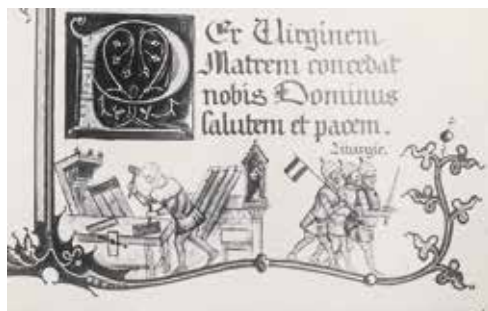 PEr Virginem
Matrem concedat
nobis Dominus
salutem et pacem.